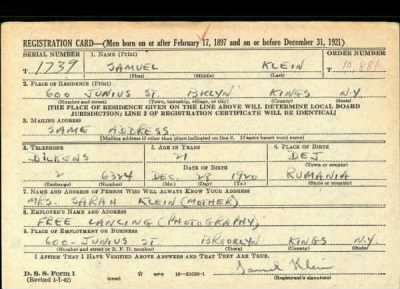 REGISTRATION CARD—(Men born on or after February 17, 1897 and on or before December 31, 1921)
SERIAL NUMBER 1. NAME (Print) ORDER NUMBER
T 1739 SAMUEL KLEIN T 10,886
(First) (Middle) (Last)
2. PLACE OF RESIDENCE (Print)
600 JUNIUS ST. BKLYN KINGS N.Y.
(Number and street) (Town, township, village, or city) (County) (State)
[THE PLACE OF RESIDENCE GIVEN ON THE LINE ABOVE WILL DETERMINE LOCAL BOARD
JURISDICTION; LINE 2 OF REGISTRATION CERTIFICATE WILL BE IDENTICAL]
3. MAILING ADDRESS
SAME ADDRESS
[Mailing address if other than place indicated on line 2. If same insert word same]
4. TELEPHONE 5. AGE IN YEARS 6. PLACE OF BIRTH
DICKENS 21 DEJ
DATE OF BIRTH (Town or county)
2 6324 DEC. 1920 RUMANIA
(Exchange) (Number) (Mo.) (Day) (Yr.) (State or country)
7. NAME AND ADDRESS OF PERSON WHO WILL ALWAYS KNOW YOUR ADDRESS
MRS. SARAH KLEIN (MOTHER)
8. EMPLOYER'S NAME AND ADDRESS
FREE LANCING (PHOTOGRAPHY)
9. PLACE OF EMPLOYMENT OR BUSINESS
600- JUNIUS ST. BROOKLYN KINGS N.Y.
(Number and street or R. F. D. number) (Town) (County) (State)
I AFFIRM THAT I HAVE VERIFIED ABOVE ANSWERS AND THAT THEY ARE TRUE.
D. S. S. Form 1 GPO Samuel Klein
(Revised 1-1-42) (Registrant's signature)